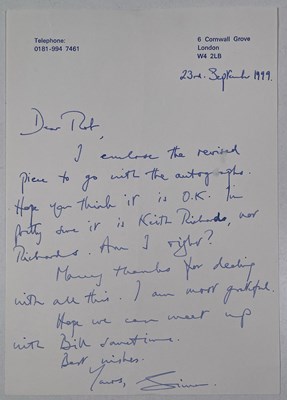 Telephone:
0181-994 7461
6 Cornwall Grove
London
W4 2LB
23rd. September 1999.
Dear Rob,
I enclose the revised
piece to go with the autographs.
Hope you think it is O.K. I'm
pretty sure it is Keith Richards, not
Richard. Am I right?
Many thanks for dealing
with all this. I am most grateful.
Hope we can meet up
with Bill sometime.
Best wishes.
Yours,